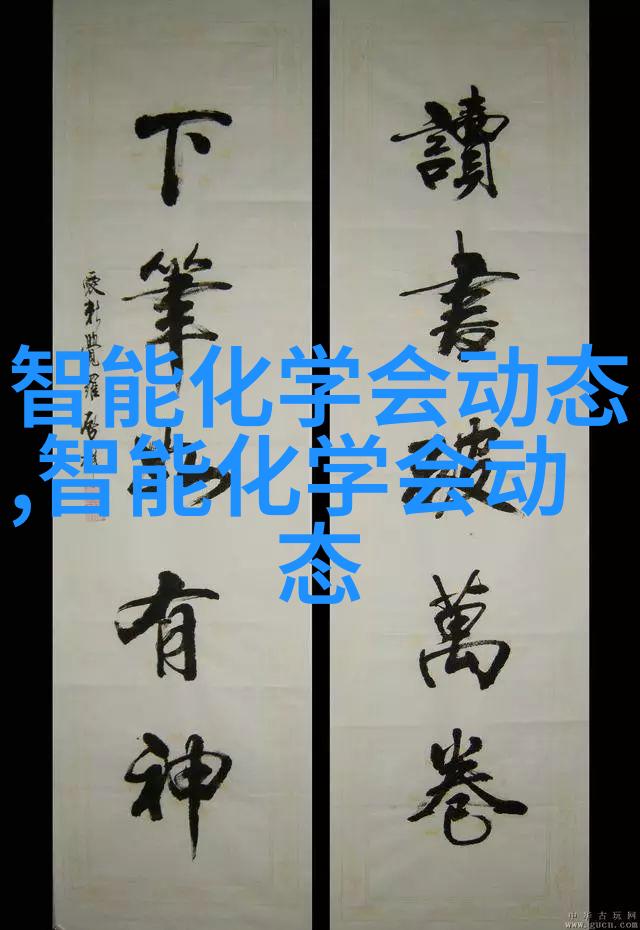 讀書破萬卷
下筆如有神
愛新覺羅啓
智能化学会动态
,智能化学会动
态
中华古玩网
www.gucn.com